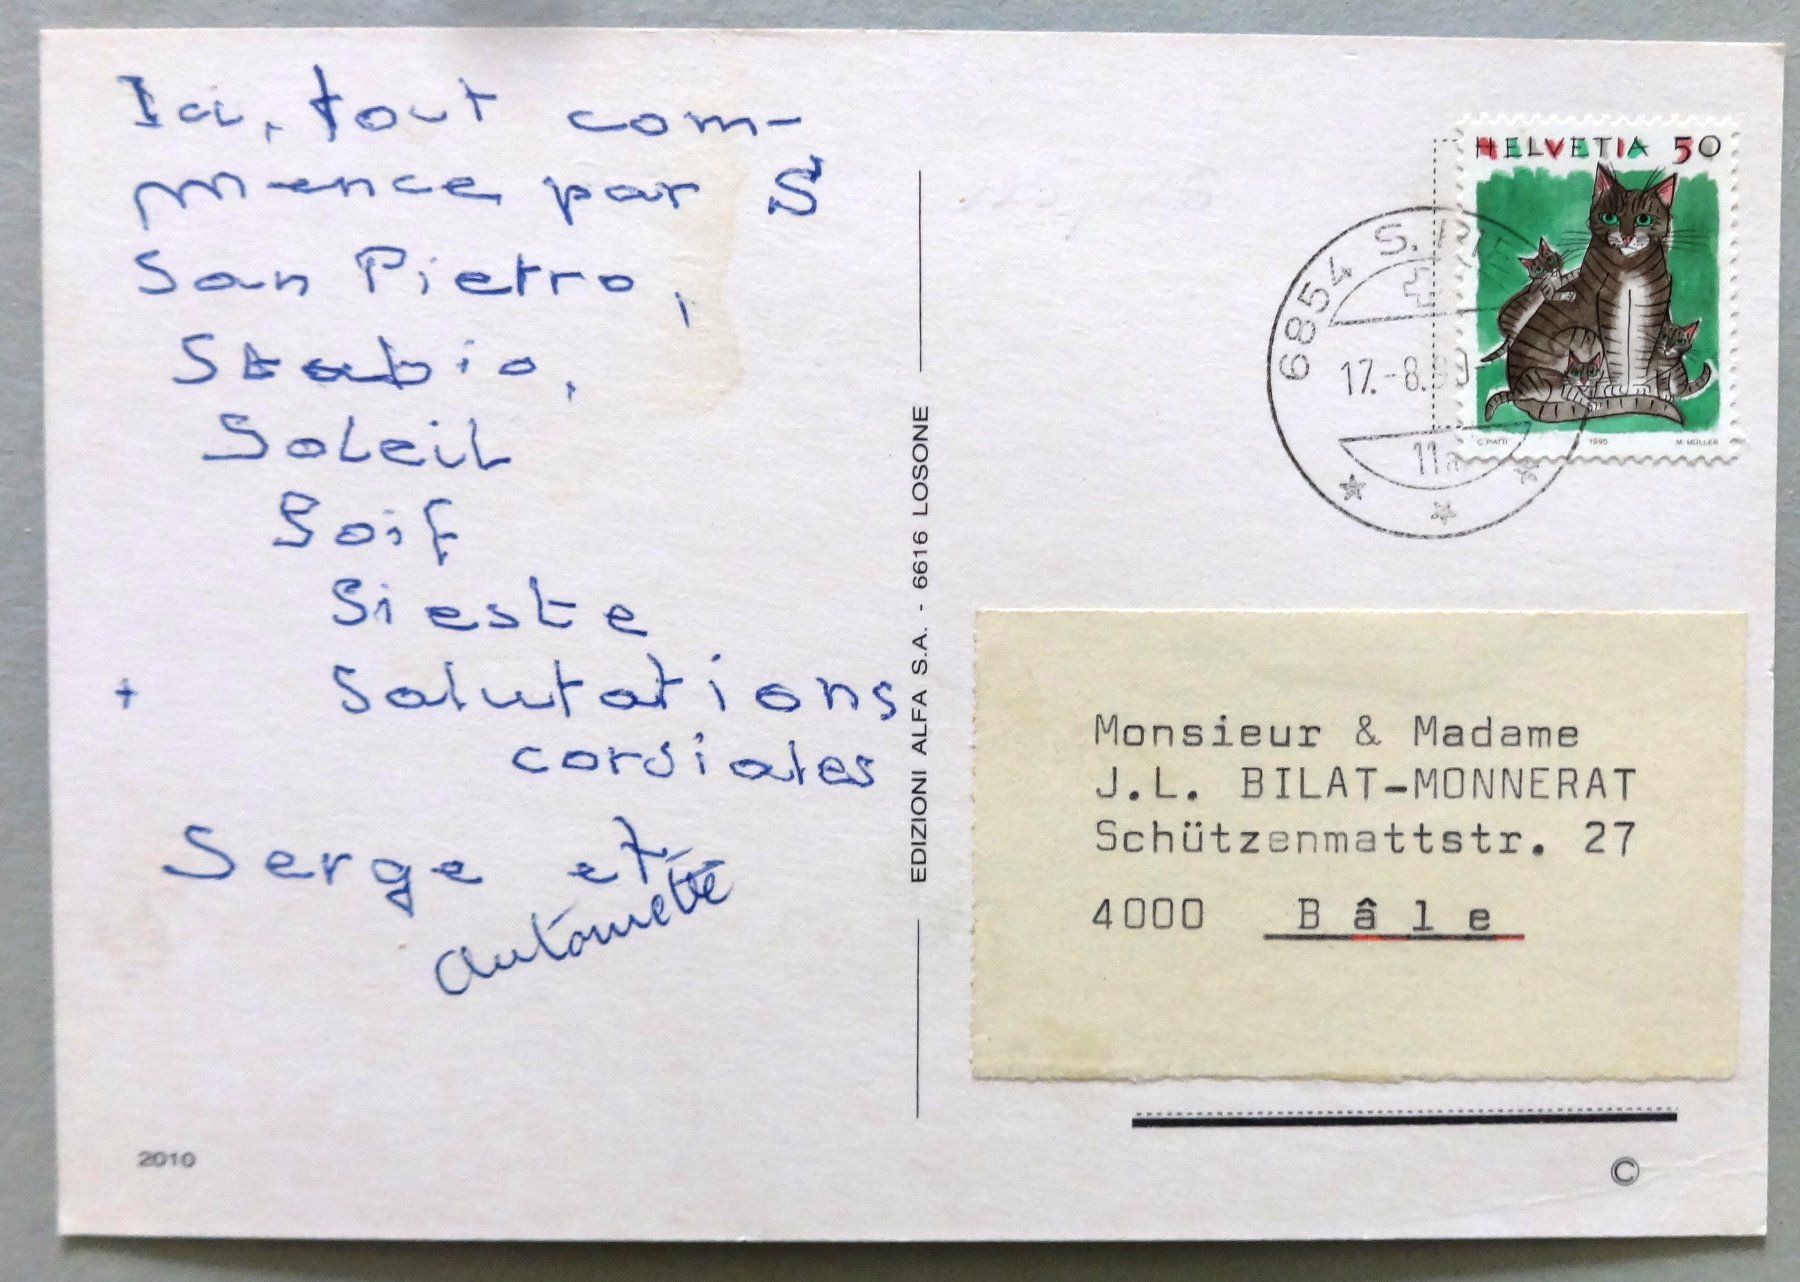 Ici, tout com-
mence par S
San Pietro,
Stabio,
Soleil
Soif
Sieste
+ Salutations
cordiales
Serge et
Antoinette
2010
EDIZIONI ALFA S.A. - 6616 LOSONE
HELVETIA 50
C. PIATTI 1990 M. MÜLLER
6854 S.
17.-8.
11
Monsieur & Madame
J.L. BILAT-MONNERAT
Schützenmattstr. 27
4000 Bâle
©